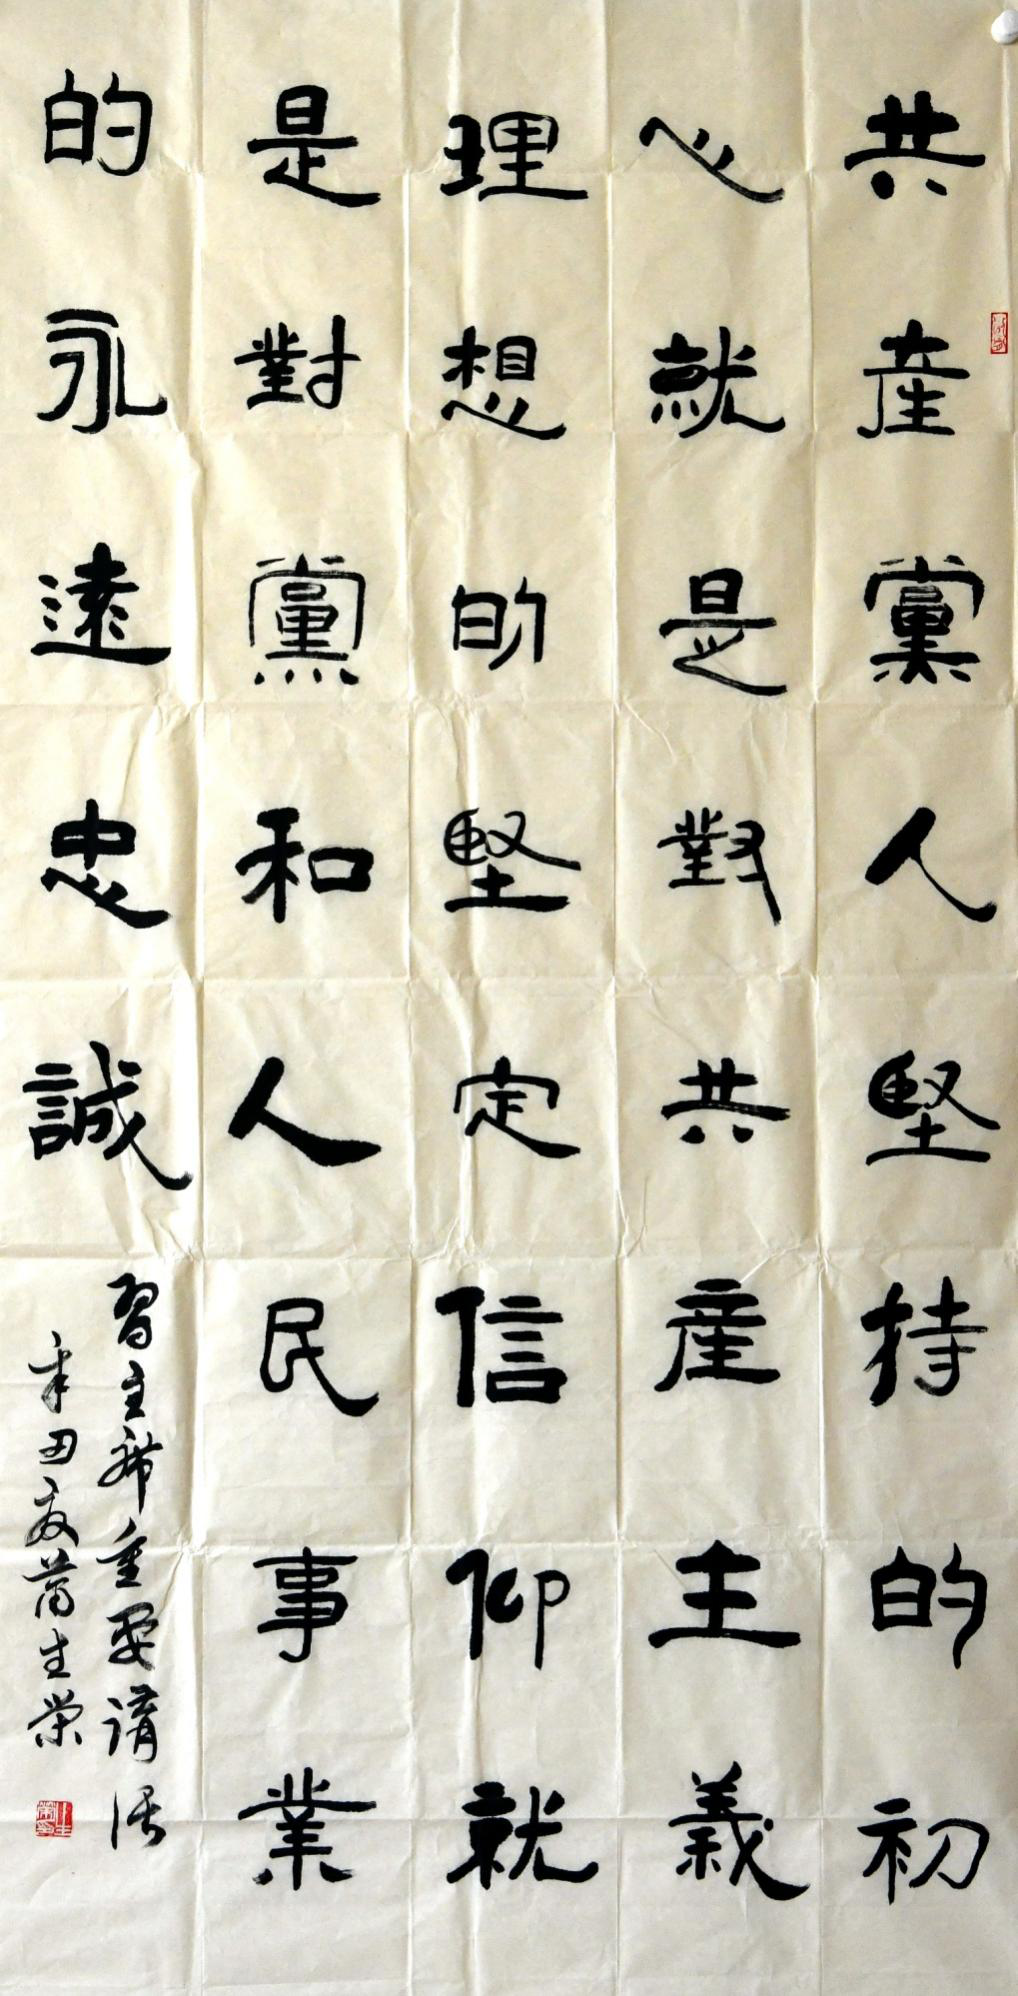 共產黨人堅持的初
心就是對共產主義
理想的堅定信仰就
是對黨和人民事業
的永遠忠誠
習主席重要講話